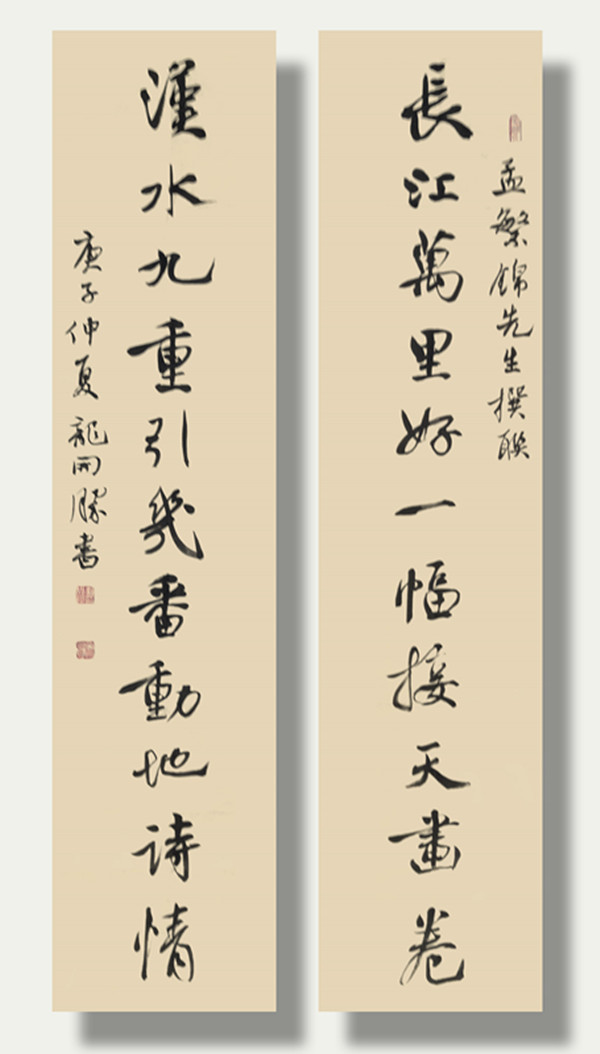 孟繁錦先生撰聯
長江萬里好一幅接天畫卷
漢水九重引幾番動地詩情
庚子仲夏龍開勝書